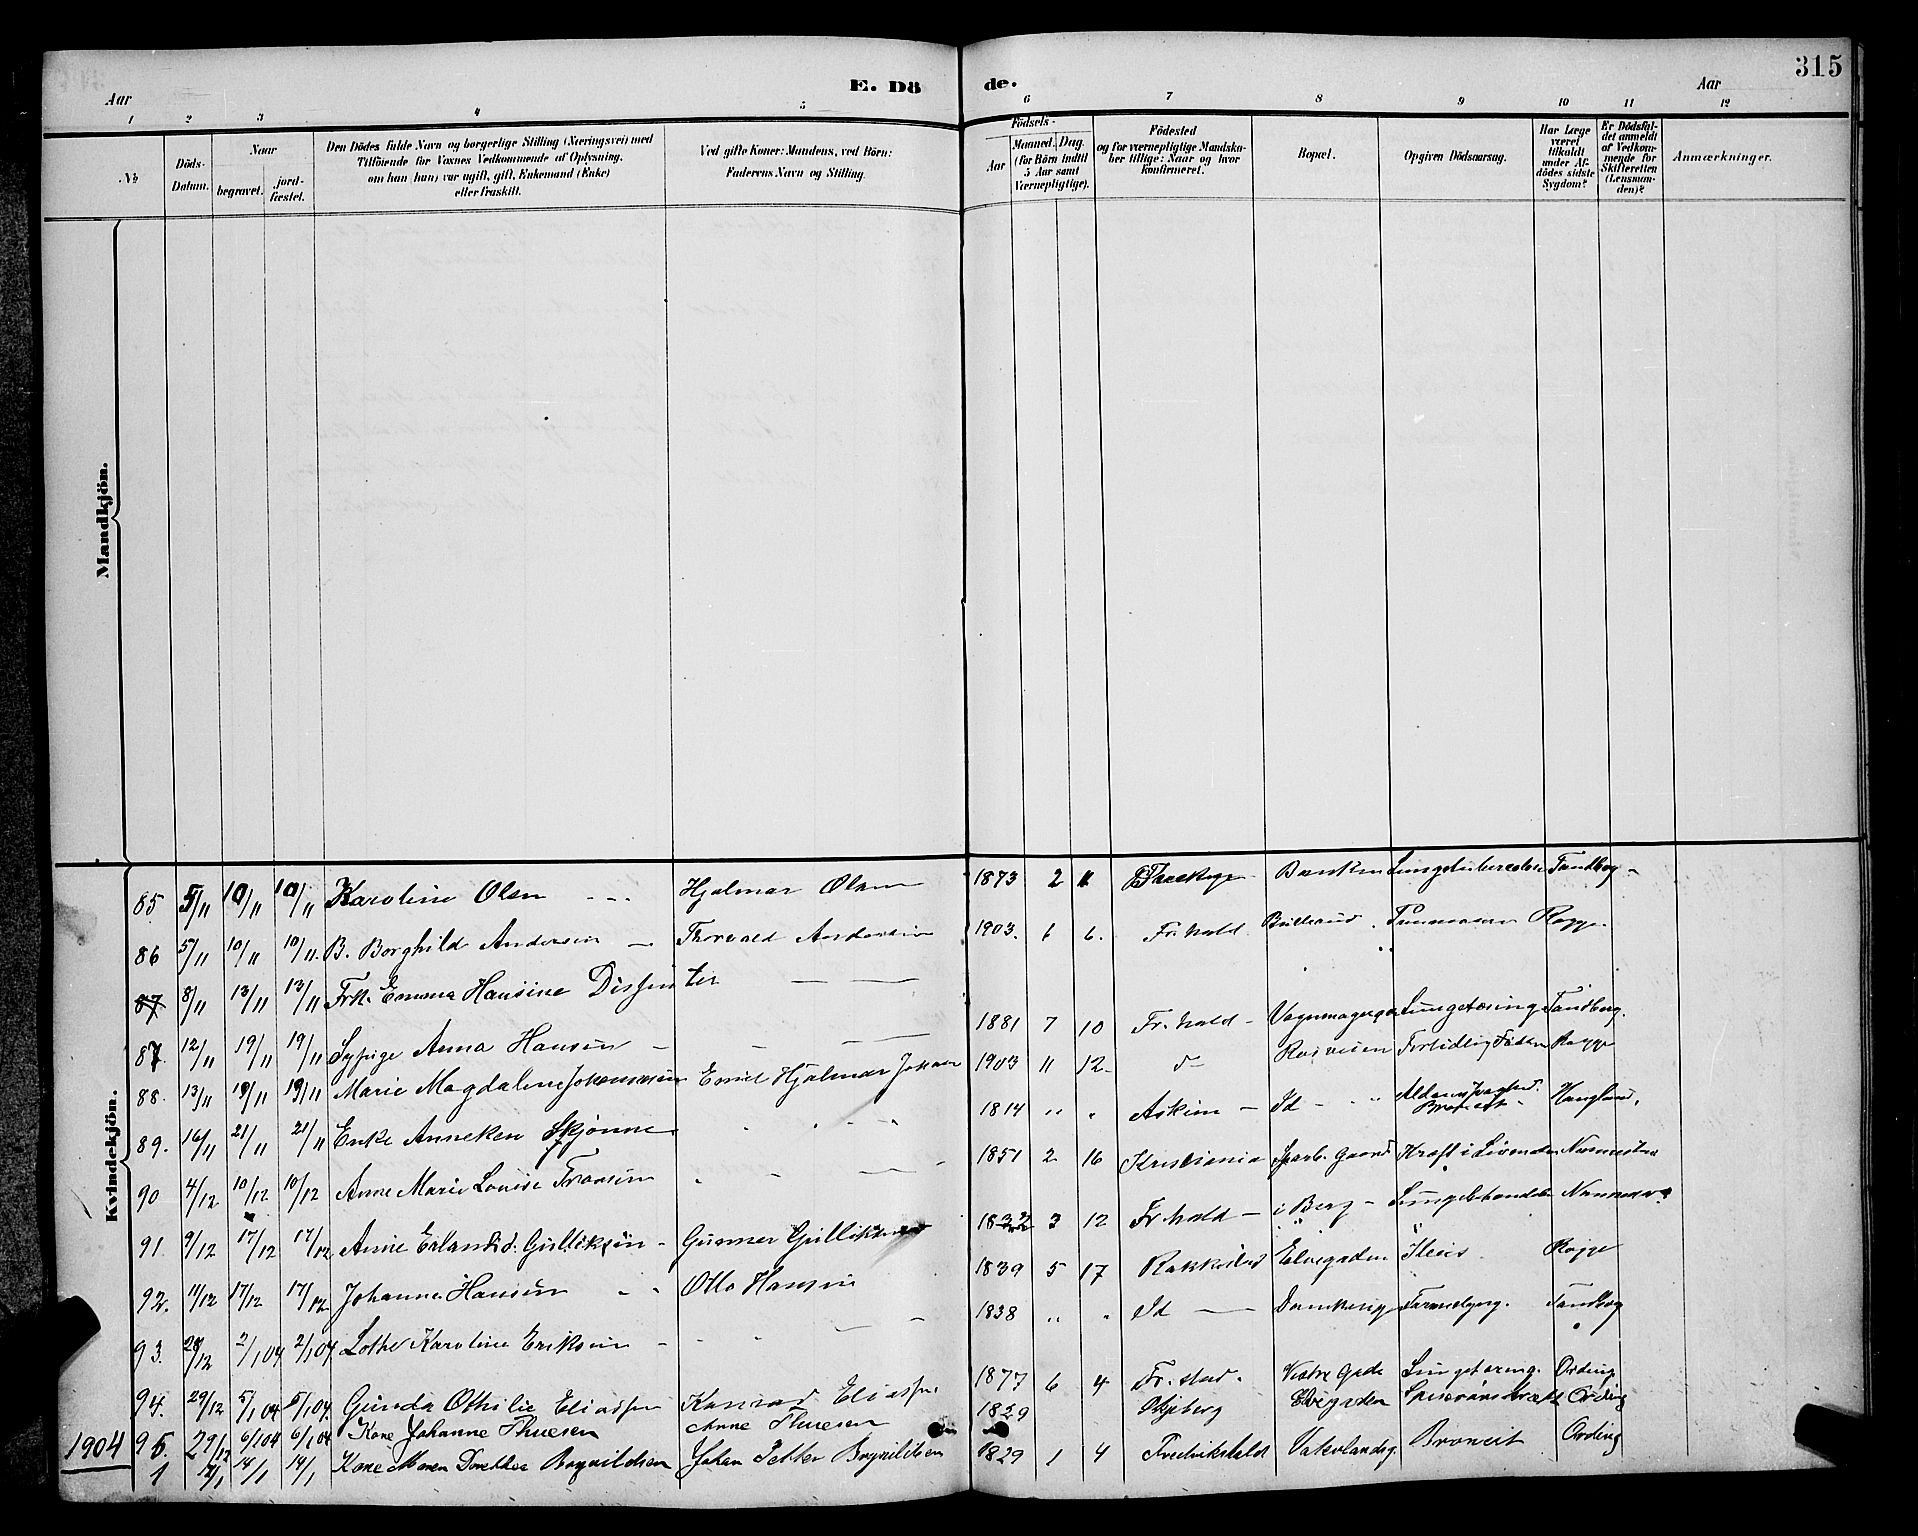 E. Dö de.
315
Aar
Aar
1 2 3 4 5 6 7 8 9 10 11 12
No
Döds-Datum.
Naar
begravet.
jord-fæstet.
Den Dödes fulde Navn og borgerlige Stilling (Næringsvei) med
Tilföiende for Voxnes Vedkommende af Oplysning,
om han (hun) var ugift, gift, Enkemand (Enke)
eller fraskilt.
Ved gifte Koner: Mandens, ved Börn:
Faderens Navn og Stilling.
Födsels-
Aar
Maaned. Dag.
(for Börn indtil
5 Aar samt
Værnepligtige).
Födested
og for værnepligtige Mandska-
ber tillige: Naar og hvor
konfirmeret.
Bopæl.
Opgiven Dödsaarsag.
Har Læge
været
tilkaldt
under Af-
dödes sidste
Sygdom?
Er Dödsfal-
det anmeldt
af Vedkom-
mende for
Skifteretten
(Lensman-
den)?
Anmærkninger.
Mandkjön.
Kvindekjön.
85 5/11 10/11 10/11 Karoline Olsen - - - Hjalmar Olsen 1873 2 Banken Lungetuberculose Tandberg -
86 5/11 10/11 10/11. B. Borghild Andersen — Thorvald Andersen 1903. 6 6. Fr.hald. Rogge.
87 8/11 13/11 13/11 Frk. Emma Hansine Dissenter — —
87 12/11 19/11 19/11 Sypige Anna Hansen - 1881 7 10 Fr.hald - Lungetæring Tandberg.
88. 13/11 19/11 19/11 Marie Magdalene Johannesen Emil Hjalmar Johansen 1903 11 12. Rogge
89. 16/11 21/11 21/11 Enke Anneken Skjønne 1814 " " Askim — Id - Haugland.
90 4/12 10/12 10/12 Anne Marie Louise Fransen 1851 2 16 Kristiania Sparb. Gaard Kræft i Liveren
91. 9/12 17/12 17/12 Anne Erlandsd. Gulliksen - Gunner Gulliksen 3 12 Fr.hald — i Berg -
92. 11/12 17/12 17/12 Johanne Hansen Otto Hansen 1839 5 17 Rakkestad Elvegaden Ileus. Rogge
93. 28/12 2/1 04 2/1 04 Lothe Karoline Eriksen - 1838 " " Id — Tandberg
94. 29/12 5/1 04 5/1 04. Gunda Othilie Eliassen Konrad Eliassen 1877 6 4 Fr.stad. Vestre Gade Lungetæring. Ording
95. 29/12 6/1 04 6/1 04 Kone Johanne Thuesen Arne Thuesen 1829 Skjeberg Elvegaden Spiserörskræft Ording
1904
1 14/1 14/1 Kone Maren Dorethea Bøynildsen Johan Petter Bøynildsen 1829 1 4 Fredrikshald Broncit Ording